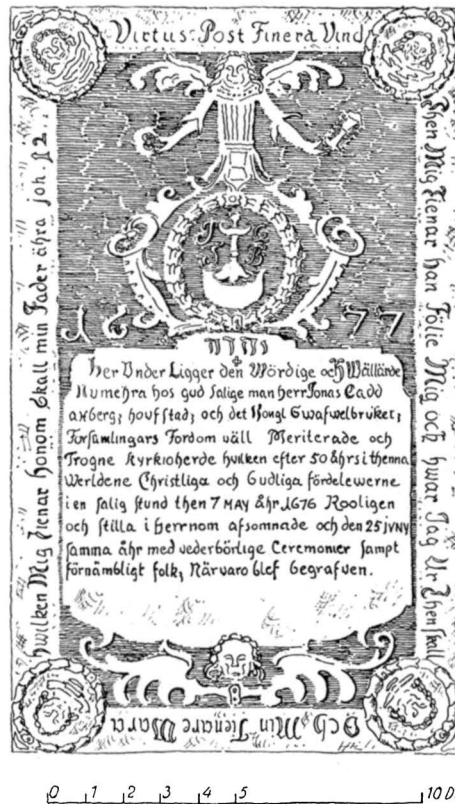 Virtus Post Finera Vind
Then Mig Tienar han Fölie Mig och hwar Jag Ur Then skall
Och Min Tienare Wara
hwilken Mig Tienar honom Skall min Fader ähra joh. 12.
1677
Her Under Ligger den Wördige och Wällärde
Numehra hos gud Salige man herr Jonas Cadd
axberg; houfstad; och det Kongl Gwafwelbruket;
Forsamlingars Fordom wäll Meriterade och
Trogne Kyrkioherde hwilken efter 50 åhrs i thenna
Werldene Christliga och Gudliga fördelewerne
i en salig stund then 7 MAY åhr 1676 Rooligen
och stilla i herrnom afsomnade och den 25 JVNY
samma åhr med vederbörlige Ceremonier sampt
förnämbligt folk, Närvaro blef begrafven.
0 1 2 3 4 5 10 D